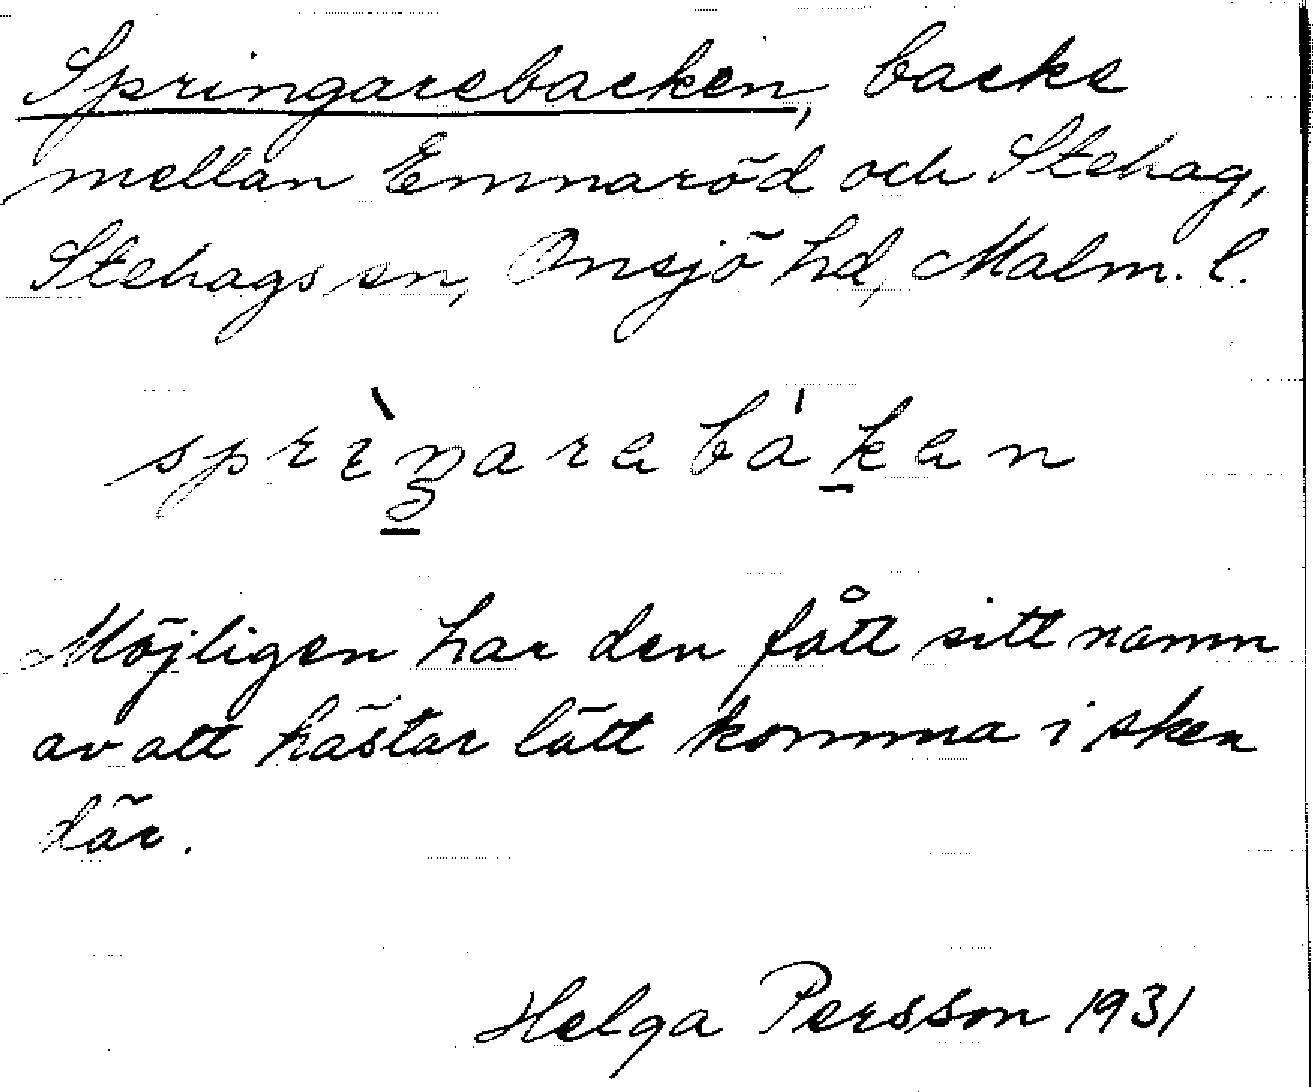 Springarebacken, backe
mellan Emnaröd och Stehag,
Stehags sn, Onsjö hd, Malm. l.
sprìŋarebáken
Möjligen har den fått sitt namn
av att hästar lätt komma i sken
där.
Helga Persson 1931